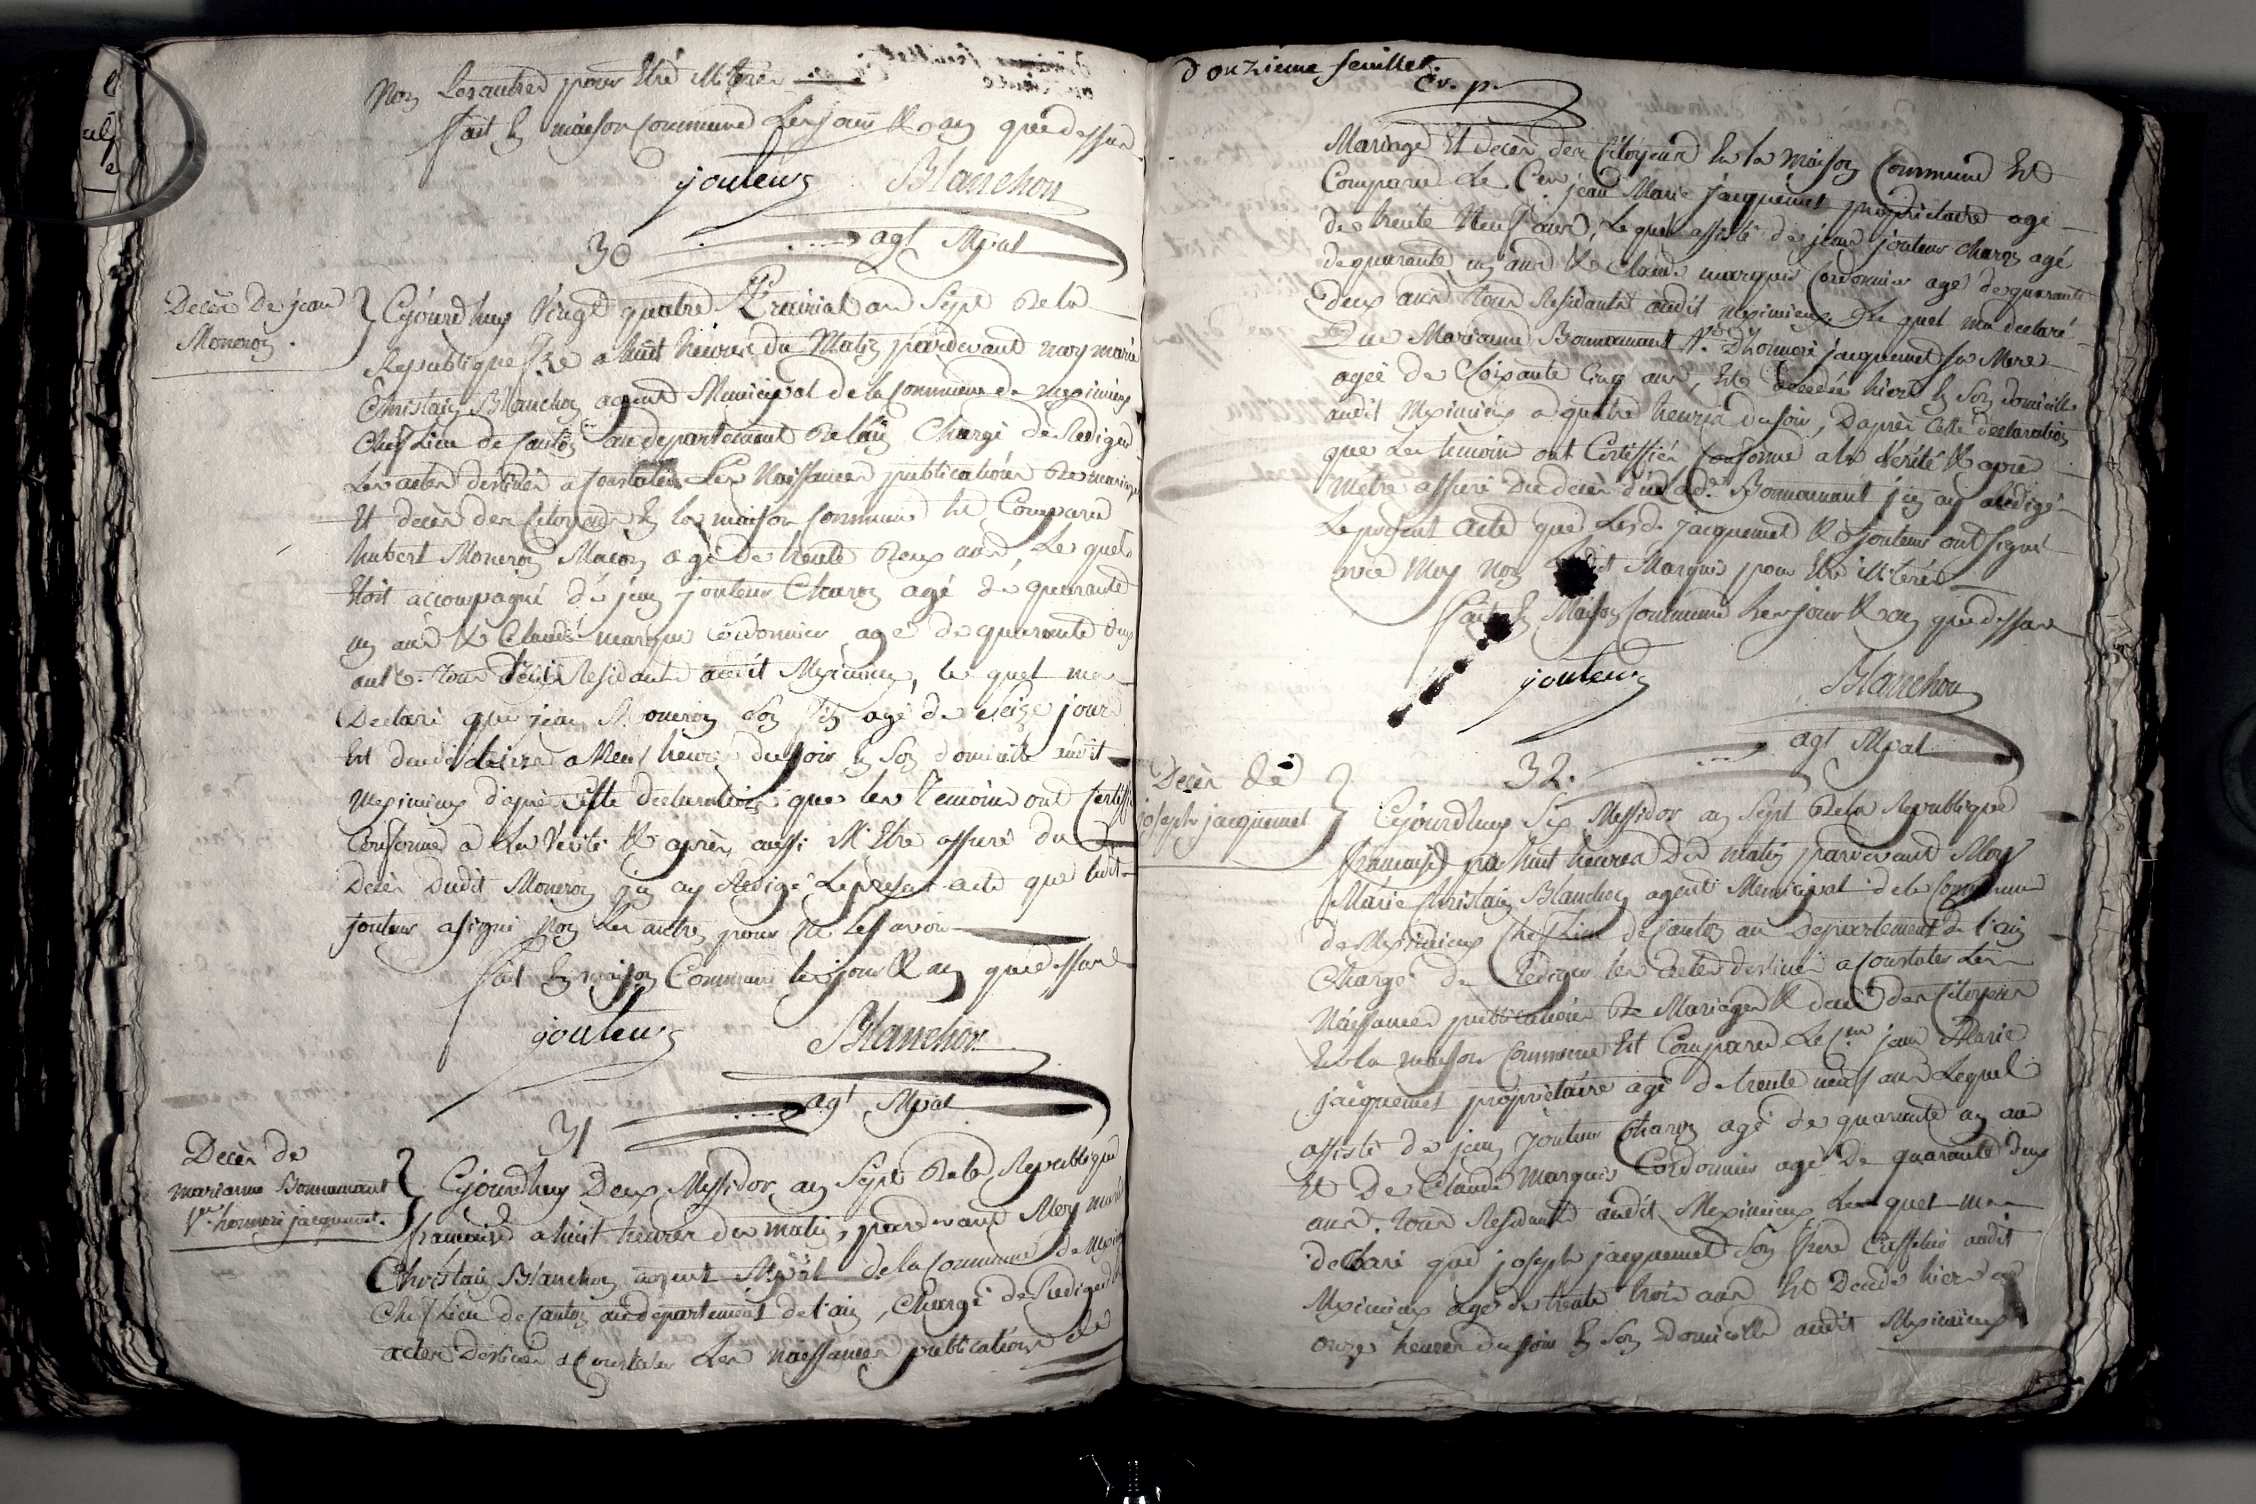 Non Les autres pour Etre illiterés
fait En maison Commune Les jour & an que dessus
jouteur Blanchon
agt Mpal
30
Decès De jean
Moneron.
Cejourdhuy Vingt quatre Prairial an Sept De la
Republique a huit heures du Matin pardevant moy marie
Christain Blanchon agent Municipal de la Commune de Meximieux
Chef Lieu de Canton au departement De L'ain Chargé de Rediger
Les actes destinés a Constater Les Naissances publications De mariages
Et decès des Citoyens En la maison Commune Est Comparu
hubert Moneron Macon agé de trente Deux ans, Le quel
Etoit accompagné de jean jouteur Charon agé de quarante
un ans & Claude marquis Cordonnier agé de quarante deux
ans tous Residants audit Meximieux, le quel ma
Declaré que jean Moneron Son fils agé de Seize jours
Est decedé hier a Neuf heures du soir En Son domicile audit
Meximieux d'après cette declaration que les Temoins ont Certiffié
Conforme a La Verité & après aussi M'Etre assuré du
Decès Dudit Moneron j'en ay Redigé Le présent acte que ledit
jouteur a signé Non Les autres pour ne Le Savoir
fait En maison Commune les jour & an que dessus
jouteur Blanchon
agt Mpal
31
Decès de
marianne Bonnamant
Ve honnoré jacquemet.
Cejourdhuy Deux Messidor an Sept De la Republique
francaise a huit heures du matin pardevant Moy Marie
Christain Blanchon agent Mpal de la Commune de Meximieux
Chef Lieu de Canton au departement de l'ain, Chargé de Rediger les
actes Destinés a Constater Les Naissances publications de
douzieme feuillet.
Cr. p.
Mariage Et decès des Citoyens En la Maison Commune Est
Comparu Le Cen jean Marie jacquemet propriétaire agé
de trente Neuf ans, Le quel assisté de jean jouteur Charon agé
de quarante un ans & Claude marquis Cordonnier agé de quarante
deux ans tous Residants audit Meximieux, Le quel ma declaré
Que Marianne Bonnamant Ve D'honnoré jacquemet Sa Mere
agée de Soixante Cinq ans, Est decedée hier En Son domicille
audit Meximieux a quatre heures du soir, D'après Cette declaration
que Les temoins ont Certiffiés Conforme a la Verité & après
m'etre assuré Du decès d'icelle Bonnamant j'en ay Redigé
Le présent acte que Lesd. jacquemet & jouteur ont signé
avec Moy Non Ledit Marquis pour Etre illiteré
fait En Maison Commune Les jour & an que dessus
jouteur Blanchon
agt Mpal
32.
Decès de
joseph jacquemet
Cejourdhuy Six Messidor an Sept De la Republique
francaise a huit heures Du matin pardevant Moy
Marie Christain Blanchon agent Municipal de la Commune
de Meximieux Chef Lieu de Canton au Departement de l'ain
Chargé de Rediger les actes destinés a Constater Les
Naissances publications De Mariages & decès des Citoyens
En la maison Commune Est Comparu Le Cen jean Marie
jacquemet propriétaire agé de trente neuf ans Lequel
assisté de jean jouteur Charon agé de quarante un ans
Et De Claude Marquis Cordonnier agé De quarante deux
ans. tous Residants audit Meximieux Le quel ma
declaré que joseph jacquemet Son frere audit
Meximieux agé de trente trois ans Est Decedé hier a
onze heures du soir En Son Domicille audit Meximieux